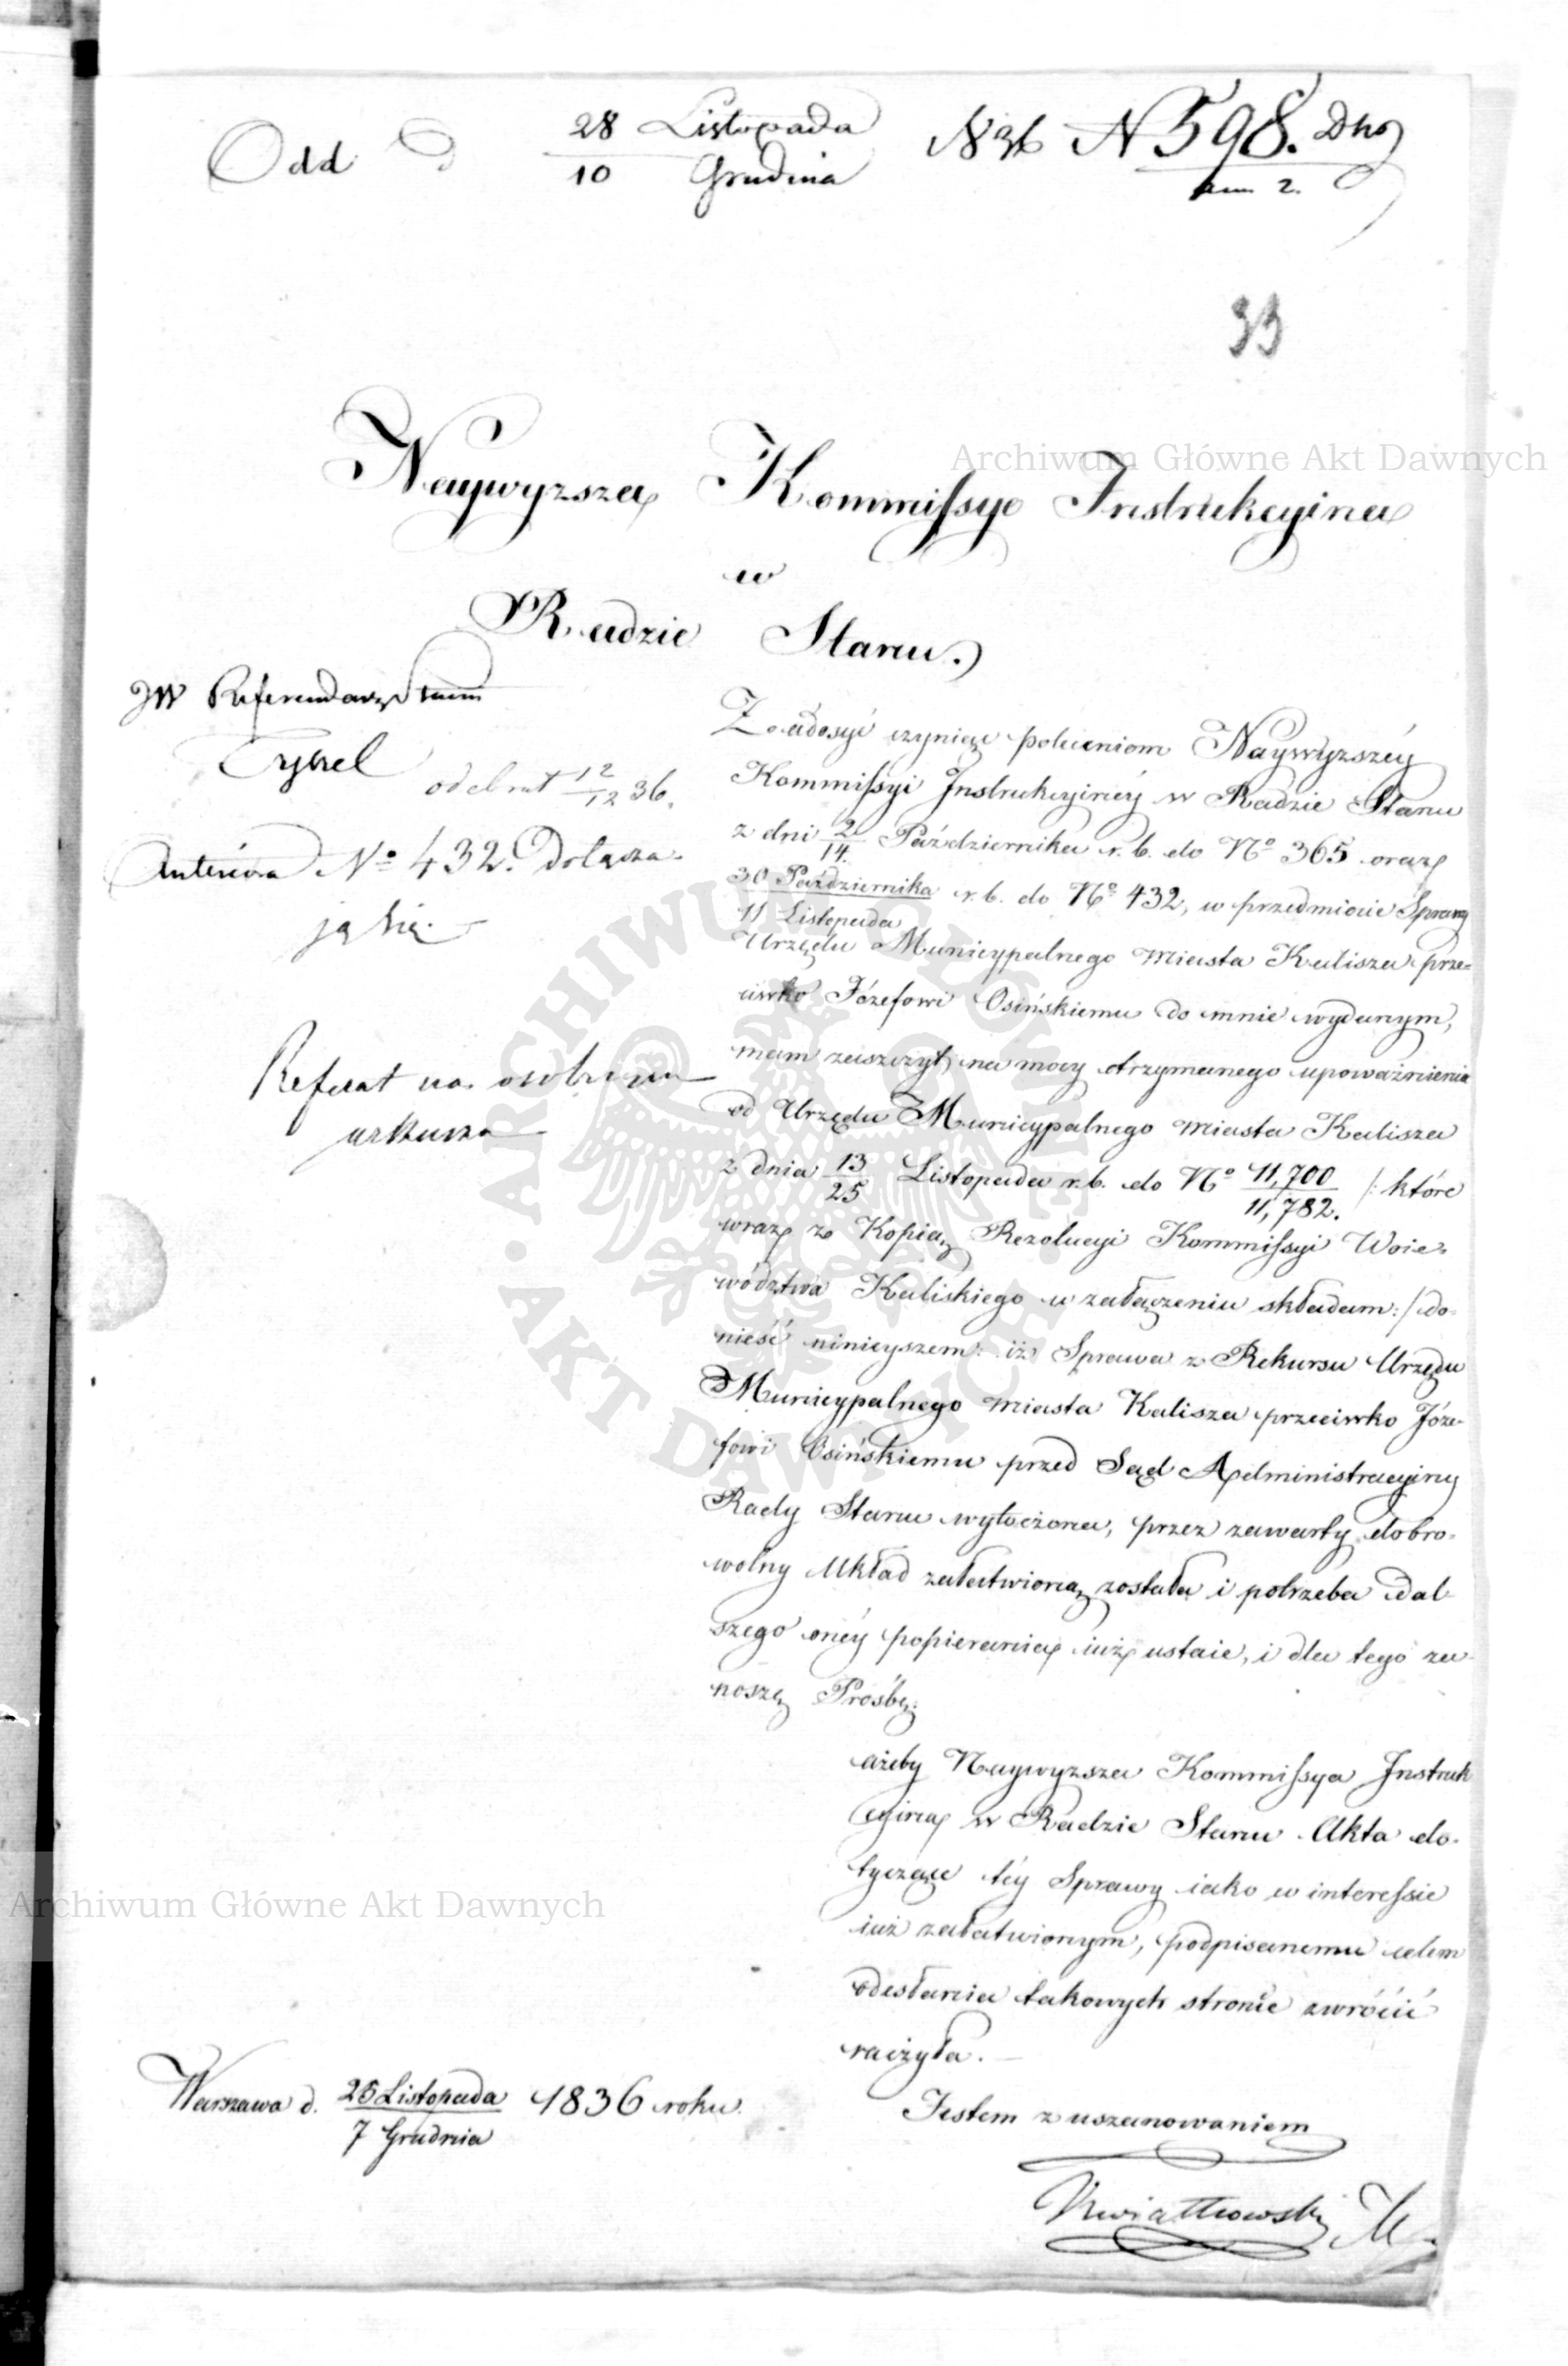 Odd D 28 Listopada / 10 Grudnia 1836 N 598. Dno
ann 2.
33
Naywyzsza Kommissyo Instrukcyina
w
Radzie Stanu.
JW Referendarz Stanu
Tykel
odebrał 12/12 36.
Anteriora No 432. Dołącza-
ją się.
Referat na osobnym
arkuszu
Zadosyć czyniąc poleceniom Naywyższéy
Kommissyi Instrukcyinéy w Radzie Stanu
z dni 2/14. Października r. b. do No 365 oraz
30 Października / 11 Listopada r. b. do No 432, w przedmiocie Sprawy
Urzędu Municypalnego Miasta Kalisza prze-
ciwko Józefowi Osińskiemu do mnie wydanym,
mam zaszczyt na mocy otrzymanego upoważnienia
od Urzędu Municypalnego Miasta Kalisza
z dnia 13/25 Listopada r. b. do No 11,700/11,782. /: które
wraz z Kopią Rezolucyi Kommissyi Woie-
wództwa Kaliskiego w załączeniu składam :/ do-
nieść ninieyszem: iż Sprawa z Rekursu Urzędu
Municypalnego Miasta Kalisza przeciwko Józe-
fowi Osińskiemu przed Sąd Administracyiny
Rady Stanu wytoczona, przez zawarty dobro-
wolny Układ załatwioną została i potrzeba dal-
szego onéy popierania iuż ustaie, i dla tego za-
noszę Prośbę:
ażeby Naywyzsza Kommissya Instruk
cyina w Radzie Stanu Akta do-
tyczące téy Sprawy iako w interessie
iuż załatwionym, podpisanemu celem
odesłania takowych stronie zwrócić
raczyła. —
Warszawa d. 25 Listopada / 7 Grudnia 1836 roku.
Jestem z uszanowaniem
Kwiatkowski M
Archiwum Główne Akt Dawnych
Archiwum Główne Akt Dawnych
ARCHIWUM GŁÓWNE
AKT DAWNYCH